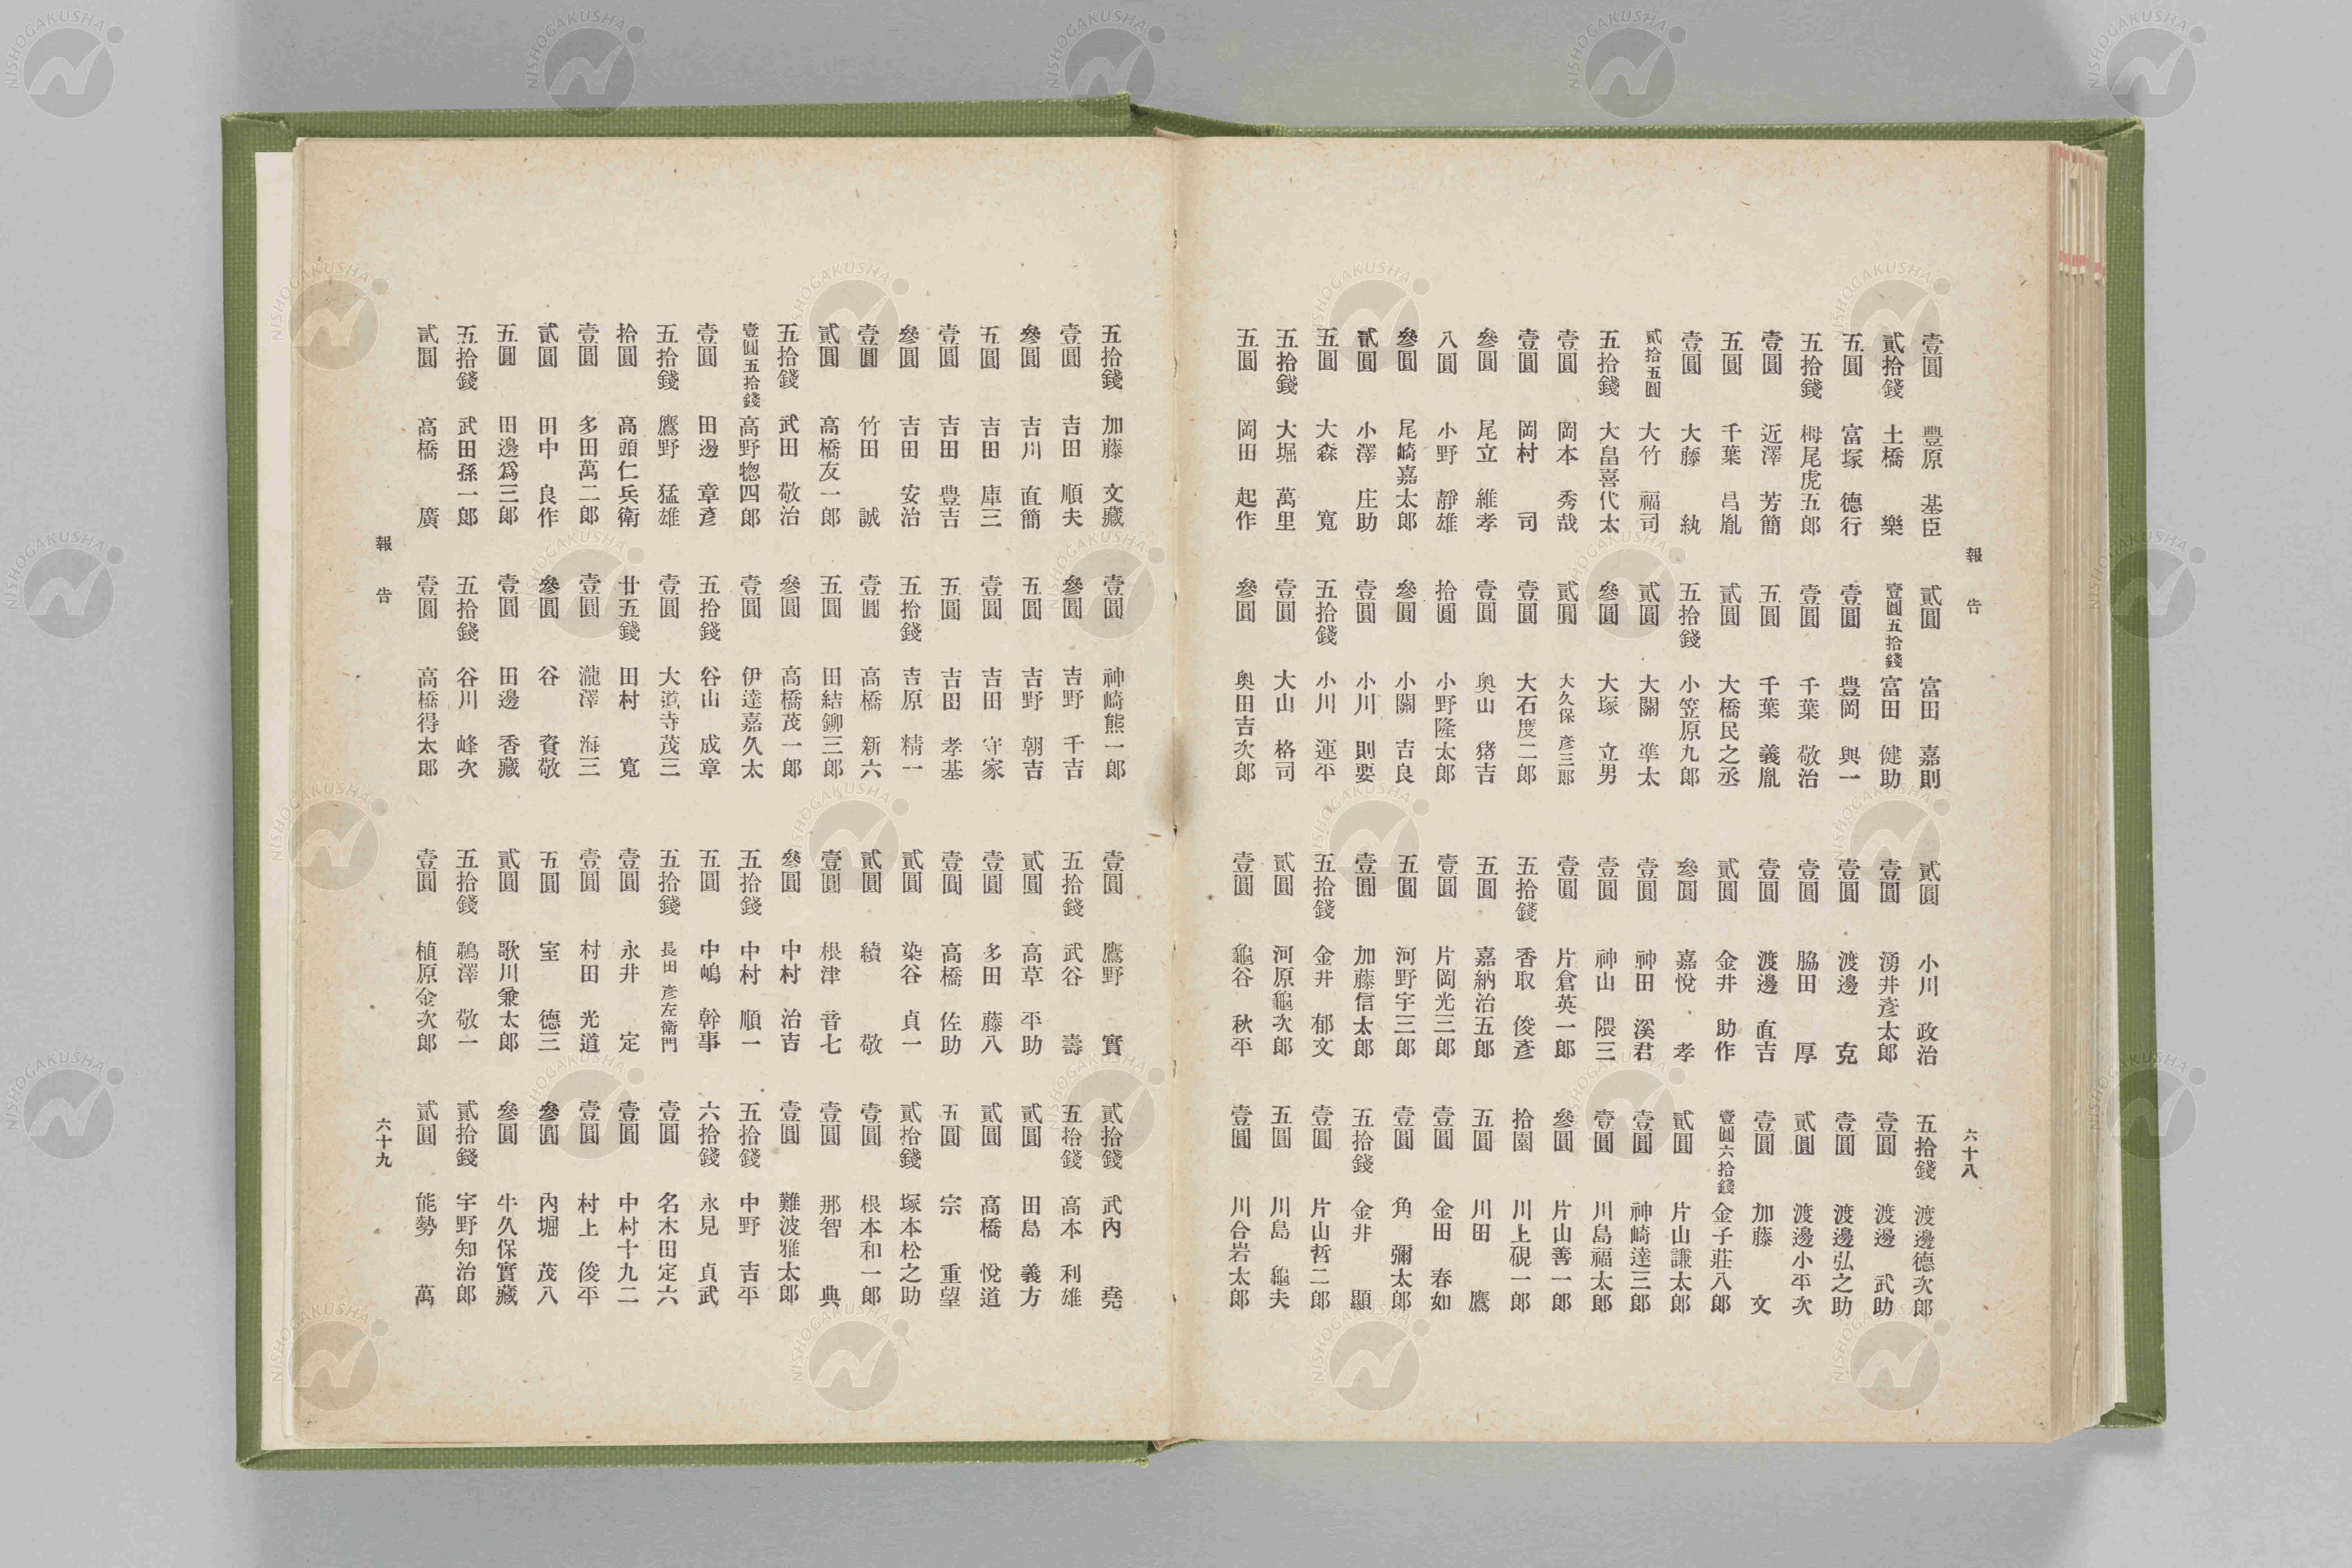 報告
六十八
壹圓 豊原 基臣 貳圓 富田 嘉則
貳拾錢 土橋 樂 壹圓五拾錢 富田 健助
五圓 富塚 德行 壹圓 豊岡 與一
五拾錢 栂尾虎五郎 壹圓 千葉 敬治
壹圓 近澤 芳簡 五圓 千葉 義胤
五圓 千葉 昌胤 貳圓 大橋民之丞
壹圓 大藤 紈 五拾錢 小笠原九郎
貳拾五圓 大竹 福司 貳圓 大關 準太
五拾錢 大畠喜代太 參圓 大塚 立男
壹圓 岡本 秀哉 貳圓 大久保 彥三郎
壹圓 岡村 司 壹圓 大石度二郎
參圓 尾立 維孝 壹圓 奧山 猪吉
八圓 小野 靜雄 拾圓 小野隆太郎
參圓 尾崎嘉太郎 參圓 小關 吉良
貳圓 小澤 庄助 壹圓 小川 則要
五圓 大森 寬 五拾錢 小川 運平
五拾錢 大堀 萬里 壹圓 大山 格司
五圓 岡田 起作 參圓 奧田吉次郎
貳圓 小川 政治 五拾錢 渡邊德次郎
壹圓 湧井彥太郎 壹圓 渡邊 武助
壹圓 渡邊 克 壹圓 渡邊弘之助
壹圓 脇田 厚 貳圓 渡邊小平次
壹圓 渡邊 直吉 壹圓 加藤 文
貳圓 金井 助作 壹圓六拾錢 金子莊八郎
參圓 嘉悅 孝 貳圓 片山謙太郎
壹圓 神田 溪君 壹圓 神崎達三郎
壹圓 神山 隈三 壹圓 川島福太郎
壹圓 片倉英一郎 參圓 片山善一郎
五拾錢 香取 俊彥 拾圓 川上硯一郎
五圓 嘉納治五郎 五圓 川田 鷹
壹圓 片岡光三郎 壹圓 金田 春如
五圓 河野宇三郎 壹圓 角 彌太郎
壹圓 加藤信太郎 五拾錢 金井 顯
五拾錢 金井 郁文 壹圓 片山哲二郎
貳圓 河原龜次郎 五圓 川島 龜夫
壹圓 龜谷 秋平 壹圓 川合岩太郎
五拾錢 加藤 文藏 壹圓 神崎熊一郎
壹圓 吉田 順夫 參圓 吉野 千吉
參圓 吉川 直簡 五圓 吉野 朝吉
五圓 吉田 庫三 壹圓 吉田 守家
壹圓 吉田 豊吉 五圓 吉田 孝基
參圓 吉田 安治 五拾錢 吉原 精一
壹圓 竹田 誠 壹圓 高橋 新六
貳圓 高橋友一郎 五圓 田結鉚三郎
五拾錢 武田 敬治 參圓 高橋茂一郎
壹圓五拾錢 高野惣四郎 壹圓 伊達嘉久太
壹圓 田邊 章彥 五拾錢 谷山 成章
五拾錢 鷹野 猛雄 壹圓 大道寺茂三
拾圓 高頭仁兵衛 廿五錢 田村 寬
壹圓 多田萬二郎 壹圓 瀧澤 海三
貳圓 田中 良作 參圓 谷 資敬
五圓 田邊爲三郎 壹圓 田邊 香藏
五拾錢 武田孫一郎 五拾錢 谷川 峰次
貳圓 高橋 廣 壹圓 高橋得太郎
壹圓 鷹野 實 貳拾錢 武內 堯
五拾錢 武谷 壽 五拾錢 高本 利雄
貳圓 高草 平助 貳圓 田島 義方
壹圓 多田 藤八 貳圓 高橋 悅道
壹圓 高橋 佐助 五圓 宗 重望
貳圓 染谷 貞一 貳拾錢 塚本松之助
貳圓 續 敬 壹圓 根本和一郎
壹圓 根津 音七 壹圓 那智 典
參圓 中村 治吉 壹圓 難波雅太郎
五拾錢 中村 順一 五拾錢 中野 吉平
五圓 中嶋 幹事 六拾錢 永見 貞武
五拾錢 長田 彥左衛門 壹圓 名木田定六
壹圓 永井 定 壹圓 中村十九二
壹圓 村田 光道 壹圓 村上 俊平
五圓 室 德三 參圓 內堀 茂八
貳圓 歌川兼太郎 參圓 牛久保實藏
五拾錢 鵜澤 敬一 貳拾錢 宇野知治郎
壹圓 植原金次郎 貳圓 能勢 萬
報告
六十九